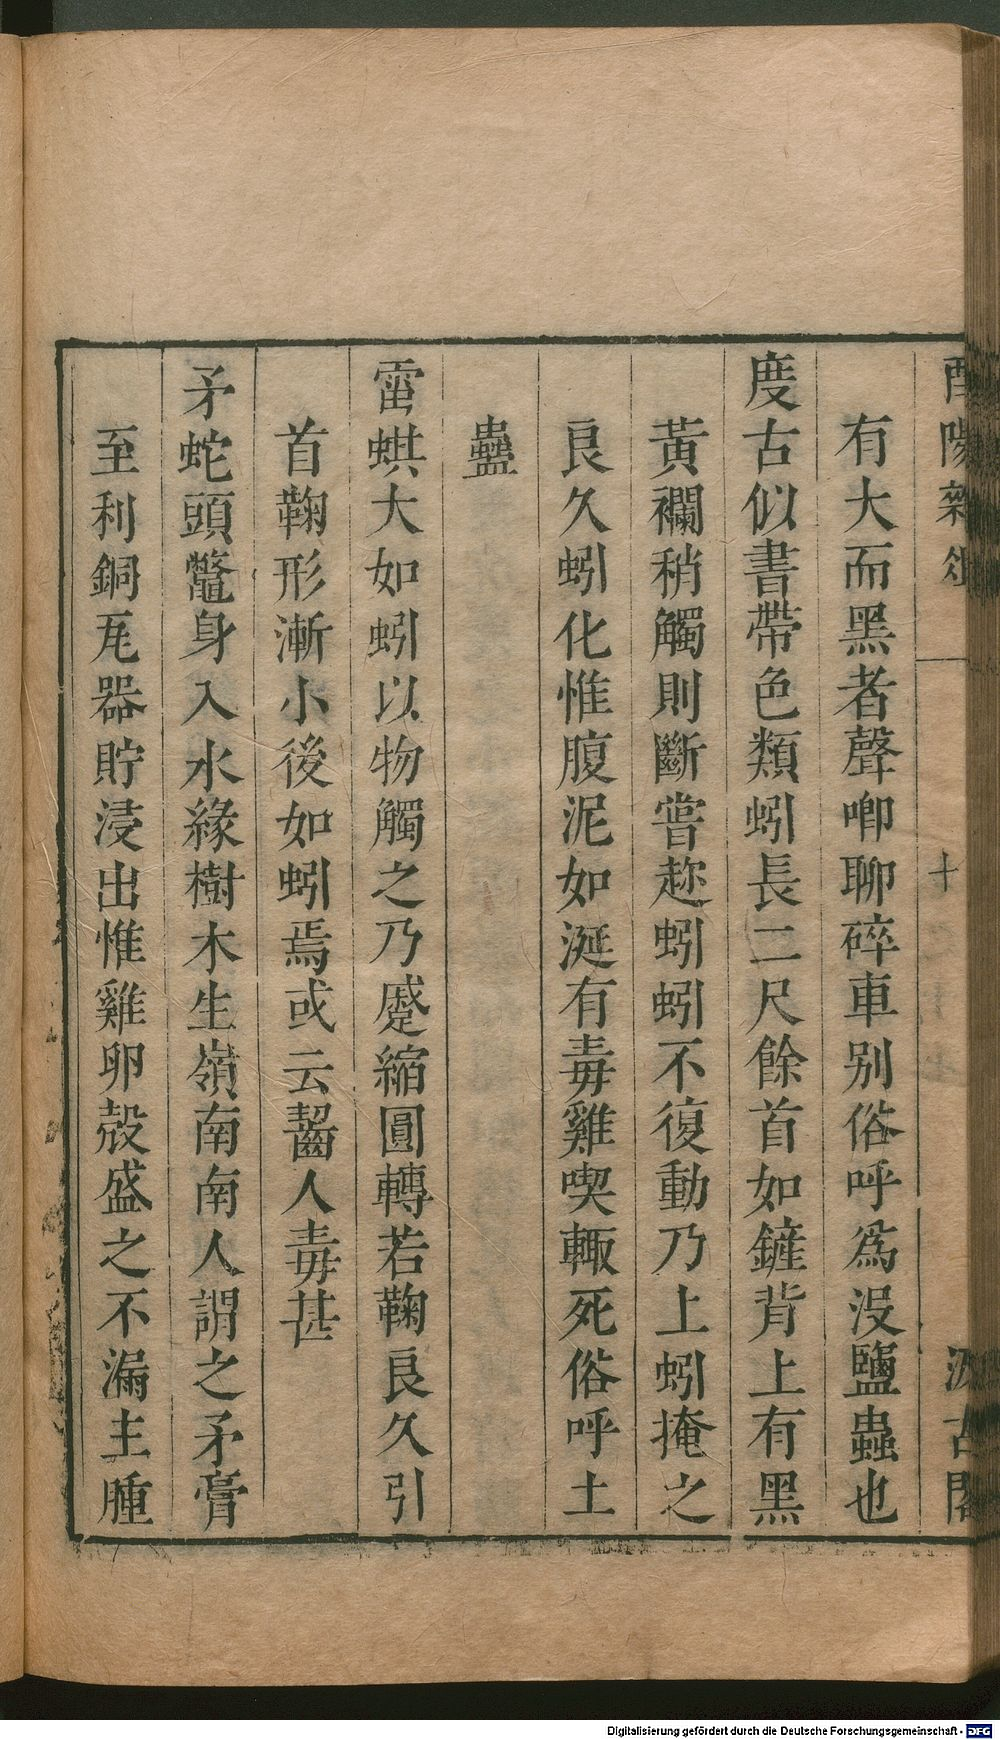 酉陽雜俎
十
汲古閣
有大而黑者聲啣聊碎車别俗呼爲沒鹽蟲也
度古似書帶色類蚓長二尺餘首如鏟背上有黑
黃襴稍觸則斷嘗趂蚓蚓不復動乃上蚓掩之
良久蚓化惟腹泥如涎有毒雞喫輙死俗呼土
蠱
雷蜞大如蚓以物觸之乃蹙縮圓轉若鞠良久引
首鞠形漸小後如蚓焉或云齧人毒甚
矛蛇頭鼈身入水緣樹木生嶺南南人謂之矛膏
至利銅瓦器貯浸出惟雞卵殼盛之不漏主腫
Digitalisierung gefördert durch die Deutsche Forschungsgemeinschaft - DFG